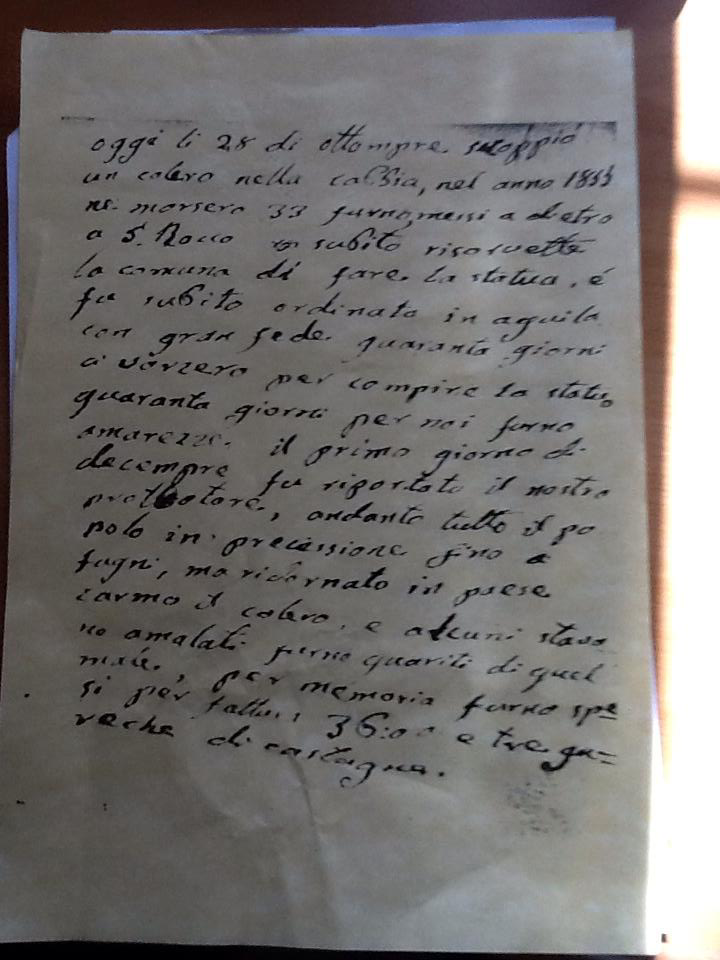 oggi li 28 di ottompre scoppiò
un colero nella cabbia, nel anno 1855
ne morsero 33 furno messi a dietro
a S. Rocco subito risorvette
la comuna di fare la statua, é
fu subito ordinata in aquila
con gran fede. quaranta giorni
ci vorzero per compire la statua
quaranta giorni per noi furno
amarezze. il primo giorno di
decempre fu riportato il nostro
protettore, andanto tutto il po
polo in precessione fino a
fugni, ma ridornato in paese
carmo il colero, e alcuni stava
no amalati furno quariti di quel
male, per memoria furno spe=
si per fatturi 36:00 e tre qu=
reche di castagne.